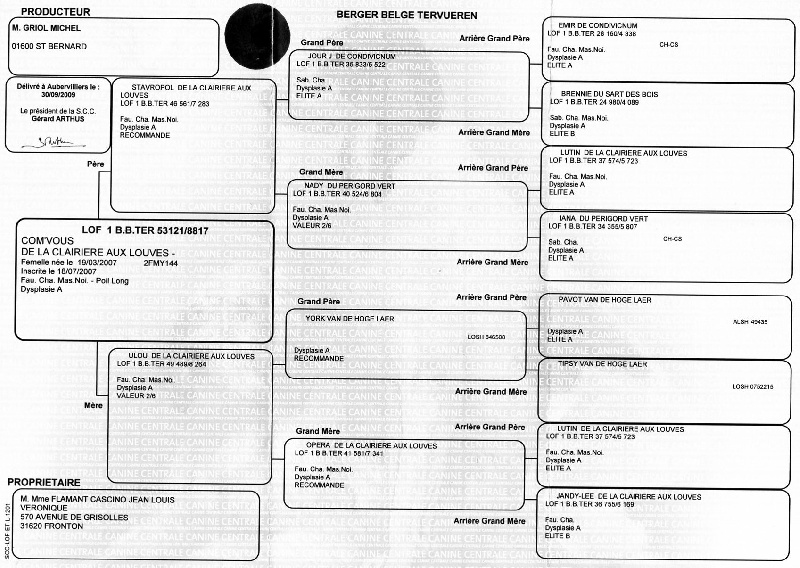 PRODUCTEUR
M. GRIOL MICHEL
01600 ST BERNARD
Délivré à Aubervilliers le :
30/09/2009
Le président de la S.C.C.
Gérard ARTHUS
BERGER BELGE TERVUEREN
Père
STAVROPOL DE LA CLAIRIERE AUX
LOUVES
LOF 1 B.B.TER 46 561/7 283
Fau. Cha. Mas.Noi.
Dysplasie A
RECOMMANDE
LOF 1 B.B.TER 53121/8817
COM'VOUS
DE LA CLAIRIERE AUX LOUVES -
Femelle née le 19/03/2007 2FMY144
Inscrite le 16/07/2007
Fau. Cha. Mas.Noi. - Poil Long
Dysplasie A
Mère
ULOU DE LA CLAIRIERE AUX LOUVES
LOF 1 B.B.TER 49 489/8 264
Fau. Cha. Mas.Noi.
Dysplasie A
VALEUR 2/6
Grand Père
JOUR J DE CONDIVICNUM
LOF 1 B.B.TER 35 833/5 522
Sab. Cha.
Dysplasie A
ELITE A
Grand Mère
NADY DU PERIGORD VERT
LOF 1 B.B.TER 40 524/6 804
Fau. Cha. Mas.Noi.
Dysplasie A
VALEUR 2/6
Grand Père
YORK VAN DE HOGE LAER
LOSH 946500
Dysplasie A
RECOMMANDE
Grand Mère
OPERA DE LA CLAIRIERE AUX LOUVES
LOF 1 B.B.TER 41 581/7 341
Fau. Cha. Mas.Noi.
Dysplasie A
RECOMMANDE
Arrière Grand Père
EMIR DE CONDIVICNUM
LOF 1 B.B.TER 26 160/4 338
CH-CS
Fau. Cha. Mas.Noi.
Dysplasie A
ELITE A
Arrière Grand Mère
BRENNIE DU SART DES BOIS
LOF 1 B.B.TER 24 980/4 089
Sab. Cha. Mas.Noi.
Dysplasie A
ELITE B
Arrière Grand Père
LUTIN DE LA CLAIRIERE AUX LOUVES
LOF 1 B.B.TER 37 574/5 723
Fau. Cha. Mas.Noi.
Dysplasie A
ELITE A
Arrière Grand Mère
IANA DU PERIGORD VERT
LOF 1 B.B.TER 34 355/5 807
CH-CS
Sab. Cha.
Dysplasie A
ELITE A
Arrière Grand Père
PAVOT VAN DE HOGE LAER
ALSH 49435
Dysplasie A
ELITE A
Arrière Grand Mère
TIPSY VAN DE HOGE LAER
LOSH 0752215
Arrière Grand Père
LUTIN DE LA CLAIRIERE AUX LOUVES
LOF 1 B.B.TER 37 574/5 723
Fau. Cha. Mas.Noi.
Dysplasie A
ELITE A
Arrière Grand Mère
JANDY-LEE DE LA CLAIRIERE AUX LOUVES
LOF 1 B.B.TER 36 755/6 169
Fau. Cha.
Dysplasie A
ELITE B
PROPRIETAIRE
M. Mme FLAMANT CASCINO JEAN LOUIS
VERONIQUE
570 AVENUE DE GRISOLLES
31620 FRONTON
SCC-LOF ET L 1201
CENTRALE CANINE